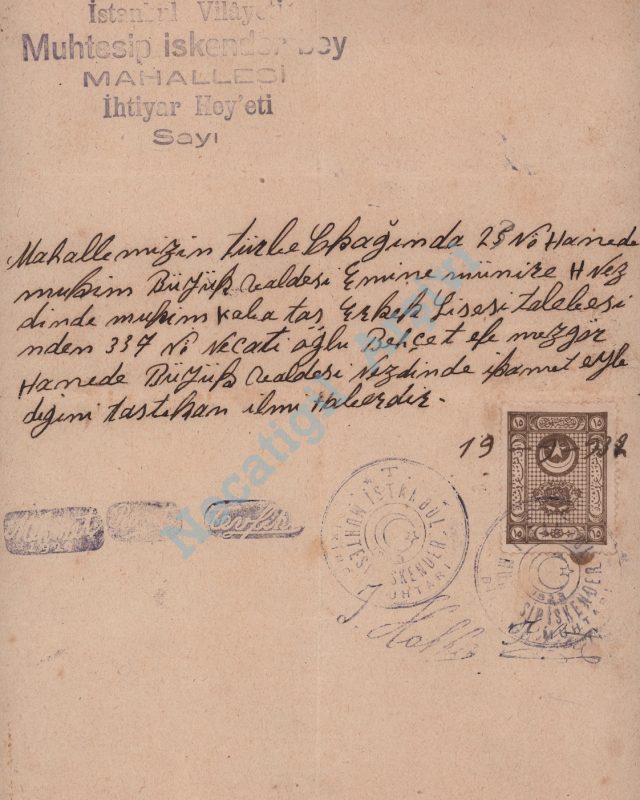 İstanbul Vilâyeti
Muhtesip iskender bey
MAHALLESİ
İhtiyar Hey'eti
Sayı
Mahallemizin türbe Sokağında 25 No Hanede
mukim Büyük valdesi Emine münire H Nez
dinde mukim Kabataş Erkek Lisesi talebesi
nden 337 No Necati oğlu Behçet efe mezgür
Hanede Büyük valdesi Nezdinde ikamet eyle
diğini tastikan ilmi Haberdir.
19
932
Tevfik
T
İSTANBUL
İSKENDER
MUHTARI
SİP İSKENDER
MUHTARI
١٥ ١٥
١٥ ١٥
Necatigil Arşivi